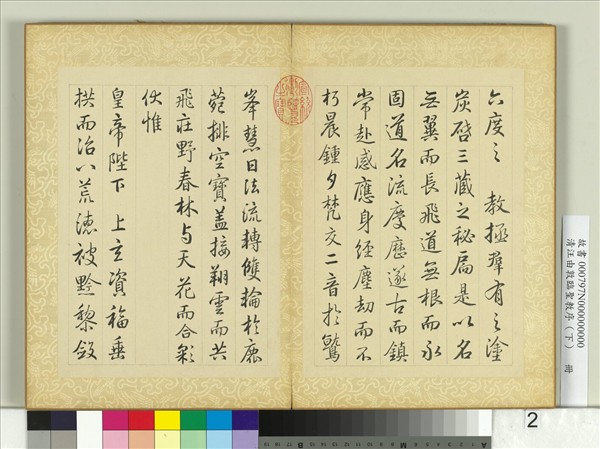 六度之 教拯羣有之塗
炭啓三藏之秘扃是以名
无翼而長飛道無根而永
固道名流慶歷遂古而鎮
常赴感應身經塵劫而不
朽晨鍾夕梵交二音於鷲
峯慧日法流轉雙輪於鹿
菀排空寶盖接翔雲而共
飛莊野春林与天花而合彩
伏惟
皇帝陛下 上玄資福垂
拱而治八荒德被黔黎斂
故書000797N000000000
清汪由敦臨聖教序（下） 冊
2